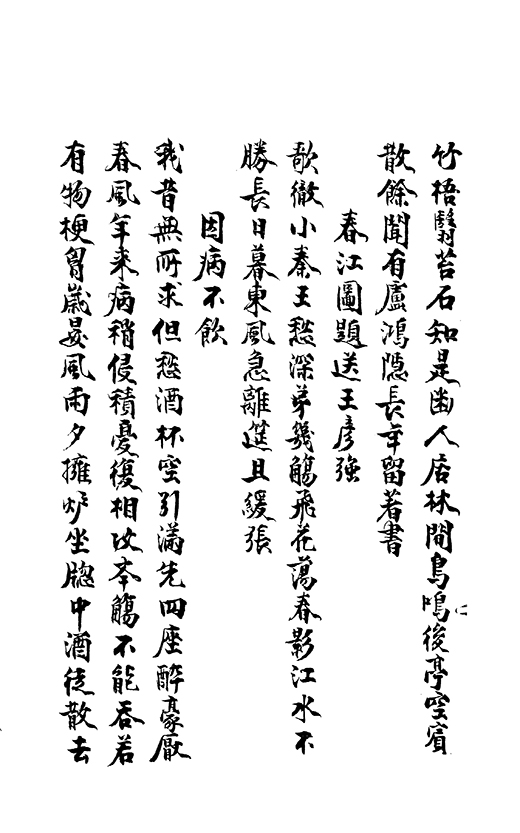 竹梧翳苔石知是幽人居林間鳥鳴後亭空賓
散餘聞有盧鴻隱長年留著書
春江圖題送王彥強
歌徹小秦王愁深第幾觴飛花蕩春影江水不
勝長日暮東風急離筵且緩張
因病不飲
我昔無所求但愁酒杯空引滿先四座醉豪厭
春風年來病稍侵積憂復相攻奉觴不能吞若
有物梗胷歲晏風雨夕擁爐坐牕中酒徒散去